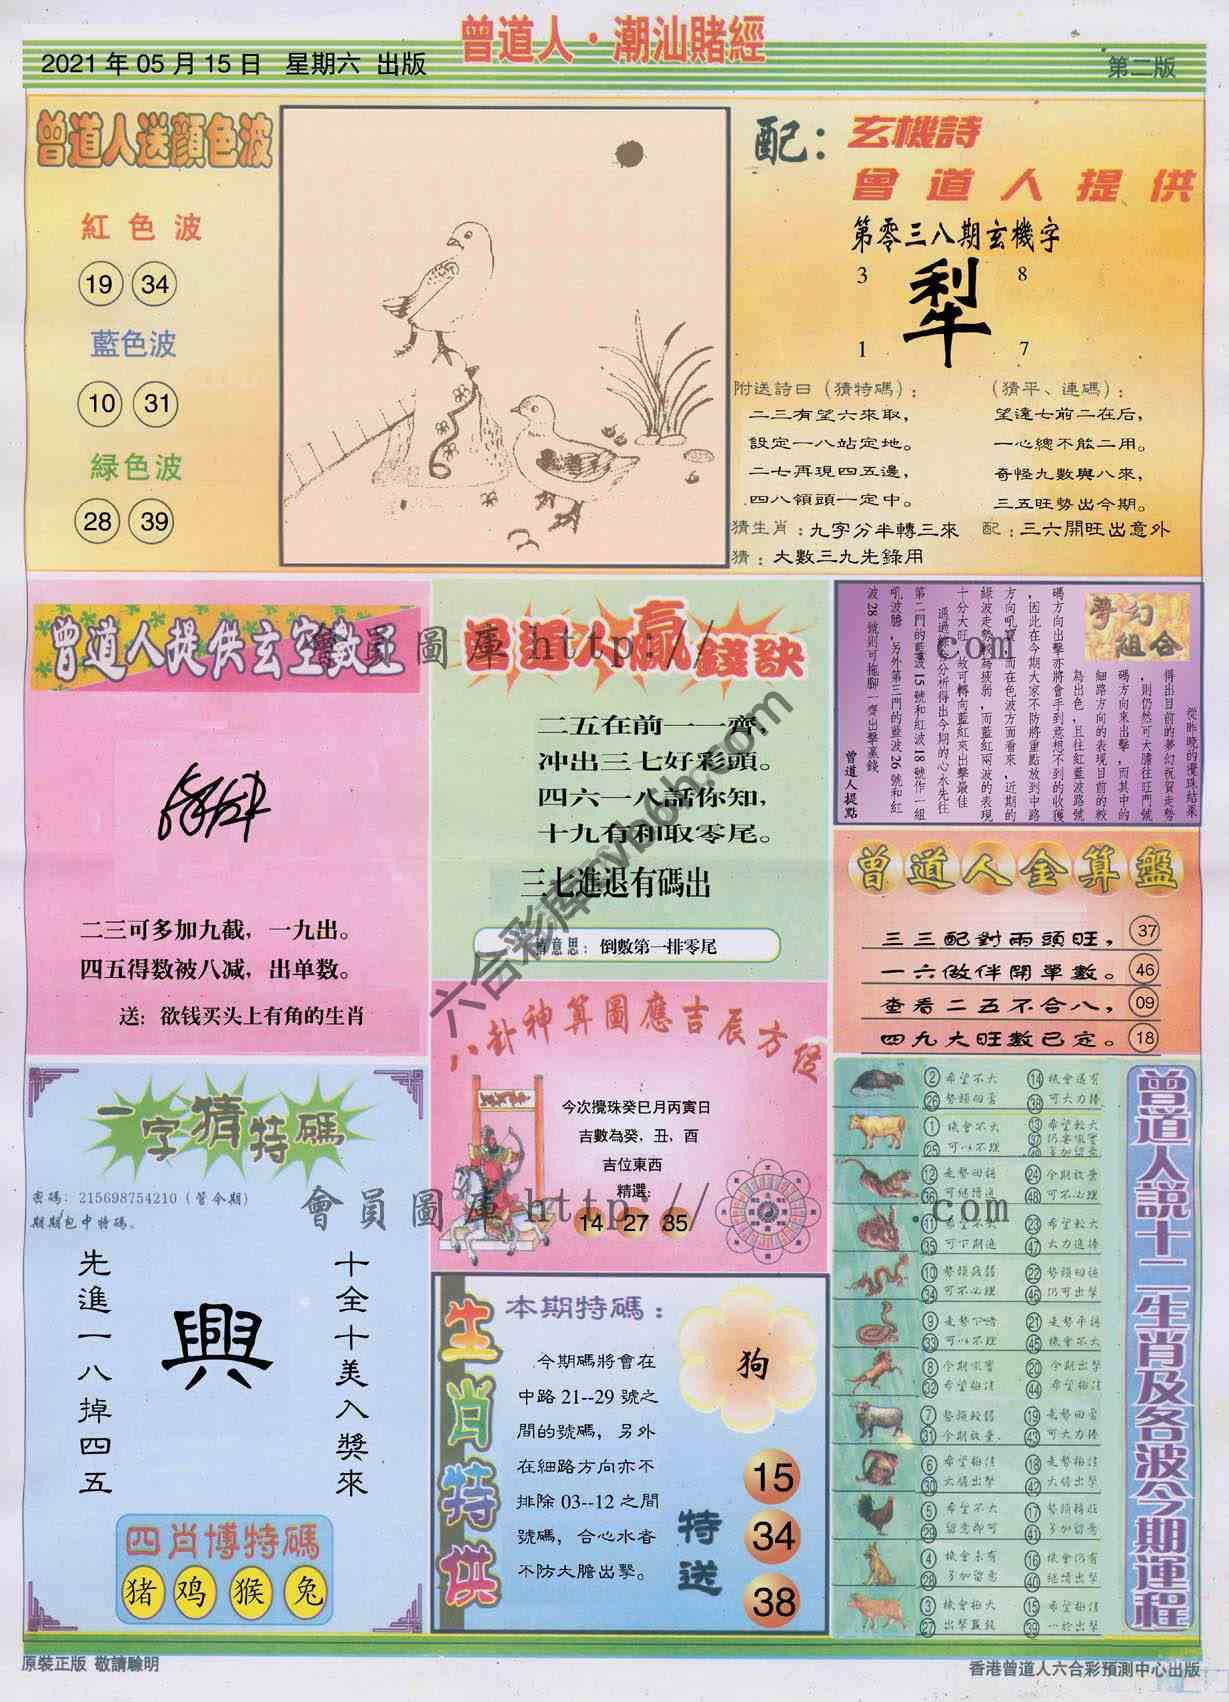 曾道人·潮汕賭經
2021年05月15日 星期六 出版
第二版
曾道人送顏色波
紅色波
19 34
藍色波
10 31
緑色波
28 39
配：玄機詩
曾道人提供
第零三八期玄機字
3 8
犁
1 7
附送詩曰（猜特碼）：
二三有望六來取，
設定一八站定地。
二七再現四五邊，
四八領頭一定中。
（猜平、連碼）：
望遠七前二在后，
一心總不能二用。
奇怪九數與八來，
三五旺勢出今期。
猜生肖：九字分半轉三來
配：三六開旺出意外
猜：大數三九先錄用
曾道人提供玄空數
二三可多加九截，一九出。
四五得数被八减，出单数。
送：欲钱买头上有角的生肖
曾道人贏錢訣
二五在前一一齊，
冲出三七好彩頭。
四六一八話你知，
十九有和取零尾。
三七進退有碼出
曾意思：倒數第一排零尾
夢幻組合
從昨晚的攪珠結果
得出目前的夢幻祝賀走勢
，則仍然可大膽往旺門號
碼方向來出擊，而其中的
細路方向的表現目前的較
為出色，且往紅藍波路號
碼方向出擊亦將會手到意想不到的收獲
，因此在今期大家不防將重點放到中路
方向吼實，而在色波方面看來，近期的
綠波走勢較為疲弱，而藍紅兩波的表現
十分大旺，故可轉向藍紅來出擊最佳
第二門的藍波15號和紅波18號作一組
吼波膽，另外第三門的藍波26號和紅
波28號則可拖腳一齊出擊贏錢
曾道人提點
曾道人金算盤
三三配對兩頭旺， 37
一六做伴開單數。 46
查看二五不合八， 09
四九大旺數已定。 18
八卦神算圖應吉辰方位
今次攪珠癸巳月丙寅日
吉數為癸，丑，酉
吉位東西
精選：
14 27 35
一字猜特碼
密碼：215698754210（管今期）
期期包中特碼。
十全十美入獎來
興
先進一八掉四五
四肖博特碼
猪 鸡 猴 兔
生肖特供
本期特碼：
今期碼將會在
中路21--29號之
間的號碼，另外
在細路方向亦不
排除03--12之間
號碼，合心水者
不防大膽出擊。
狗
特送
15
34
38
曾道人説十二生肖及各波今期運程
② 希望不大 ⑭ 機會還有
㉖ 勢頭回著 ㊳ 可大力捧
① 機會不大 ⑬ 希望較大
㉕ 可以不理
⑫ 走勢回語 ㉔ 今期放棄
㊱ ㊽ 可不必理
⑪ ㉓ 希望較大
㉟ 可下期進 ㊼ 大力進捧
⑩ 勢頭疲弱 ㉒ 勢頭回語
㉞ 可不必理 ㊻ 仍可出擊
⑨ 走勢下嗜 ㉑ 走勢平語
㉝ 可以不理 ㊺ 機會不大
⑧ 今期吼實 ⑳ 今期出擊
㉜ 希望極佳 ㊹ 希望極佳
⑦ 勢頭較弱 ⑲ 走勢回著
㉛ 今期放棄 ㊸ 可大力捧
⑥ 希望極佳 ⑱ 走勢極佳
㉚ 大膽出擊 ㊷ 大膽出擊
⑤ 希望不大 ⑰ 勢頭轉旺
㉙ 留意即可 ㊶ 多加留意
④ 機會未有 ⑯ 機會仍有
㉘ 多加留意 ㊵ 繼續出擊
③ 機會極大 ⑮ 希望極佳
㉗ 出擊贏錢 ㊴ 一於出擊
原裝正版 敬請驗明
香港曾道人六合彩預測中心出版
會員圖庫 http://
.com
六合彩库cyb6b.com
會員圖庫 http://
.com